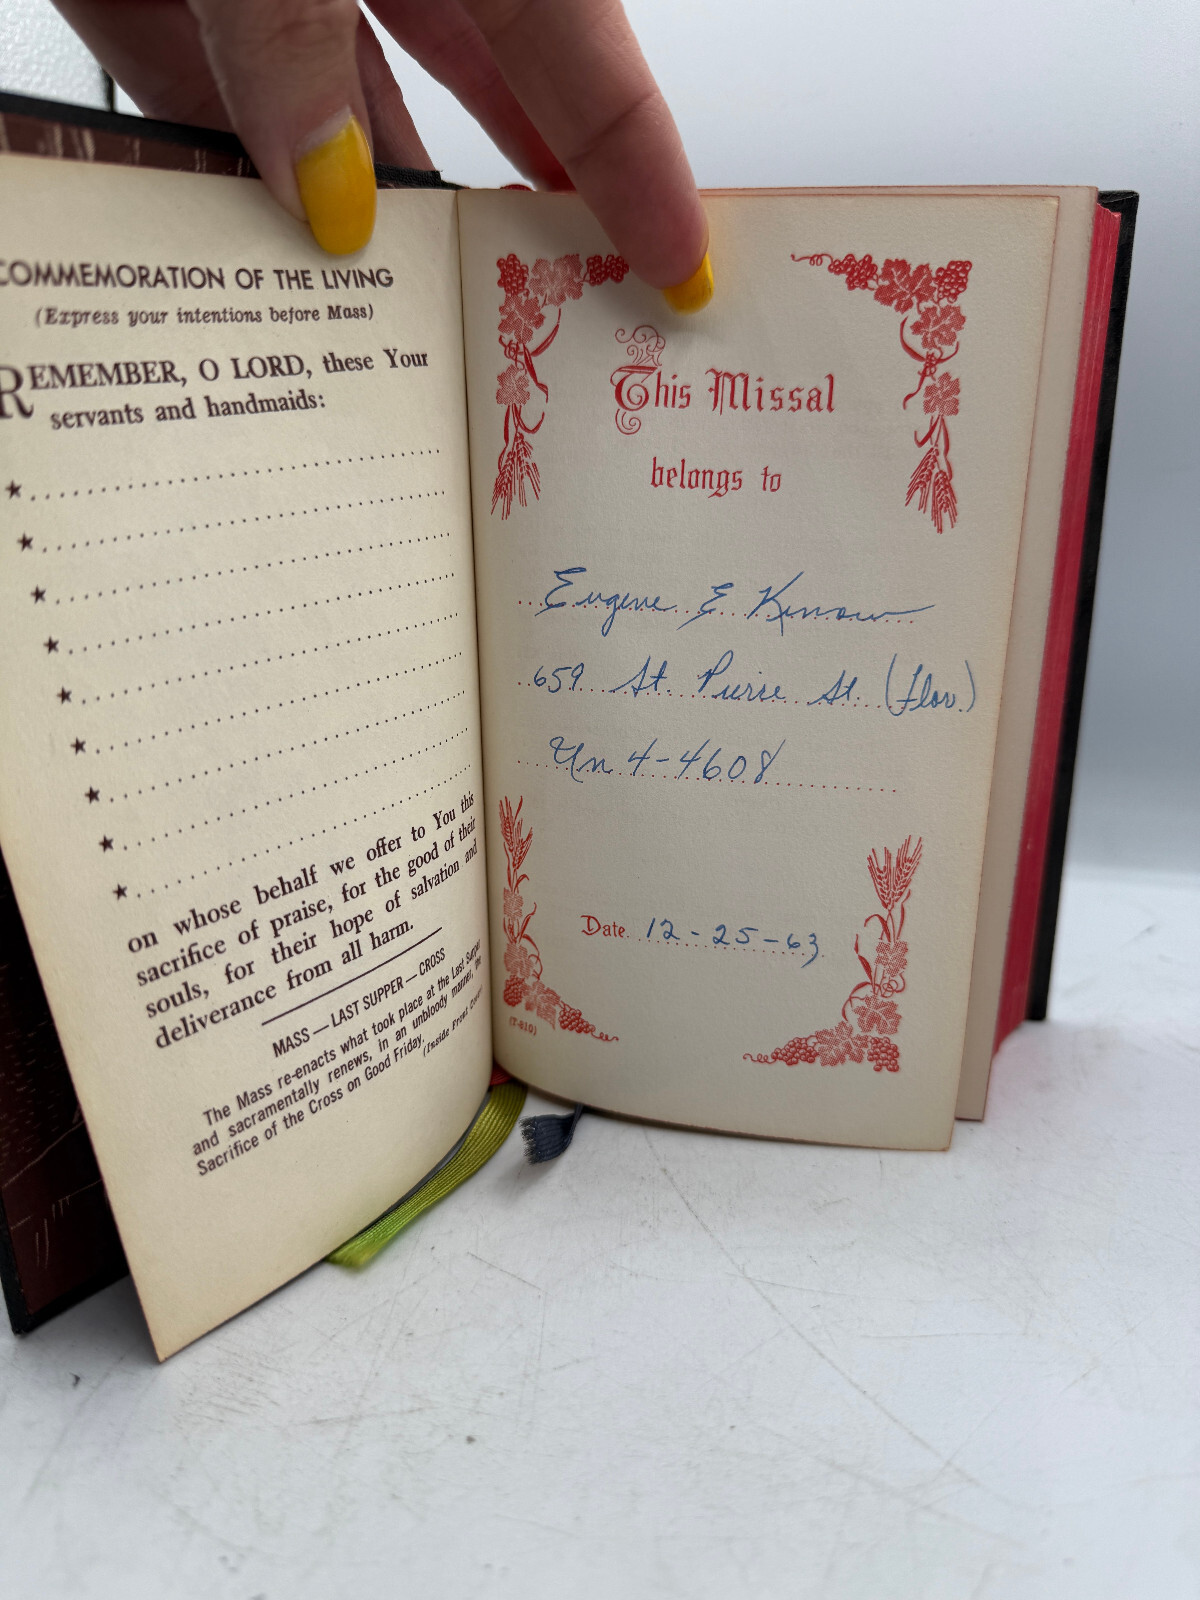 COMMEMORATION OF THE LIVING
(Express your intentions before Mass)
REMEMBER, O LORD, these Your
servants and handmaids:
on whose behalf we offer to You this
sacrifice of praise, for the good of their
souls, for their hope of salvation and
deliverance from all harm.
MASS — LAST SUPPER — CROSS
The Mass re-enacts what took place at the Last Supper
and sacramentally renews, in an unbloody manner, the
Sacrifice of the Cross on Good Friday.
(Inside Front Cover)
This Missal
belongs to
Eugene E
659 St. Pierre St. (Flor.)
Un 4-4608
Date 12-25-63
(T-810)